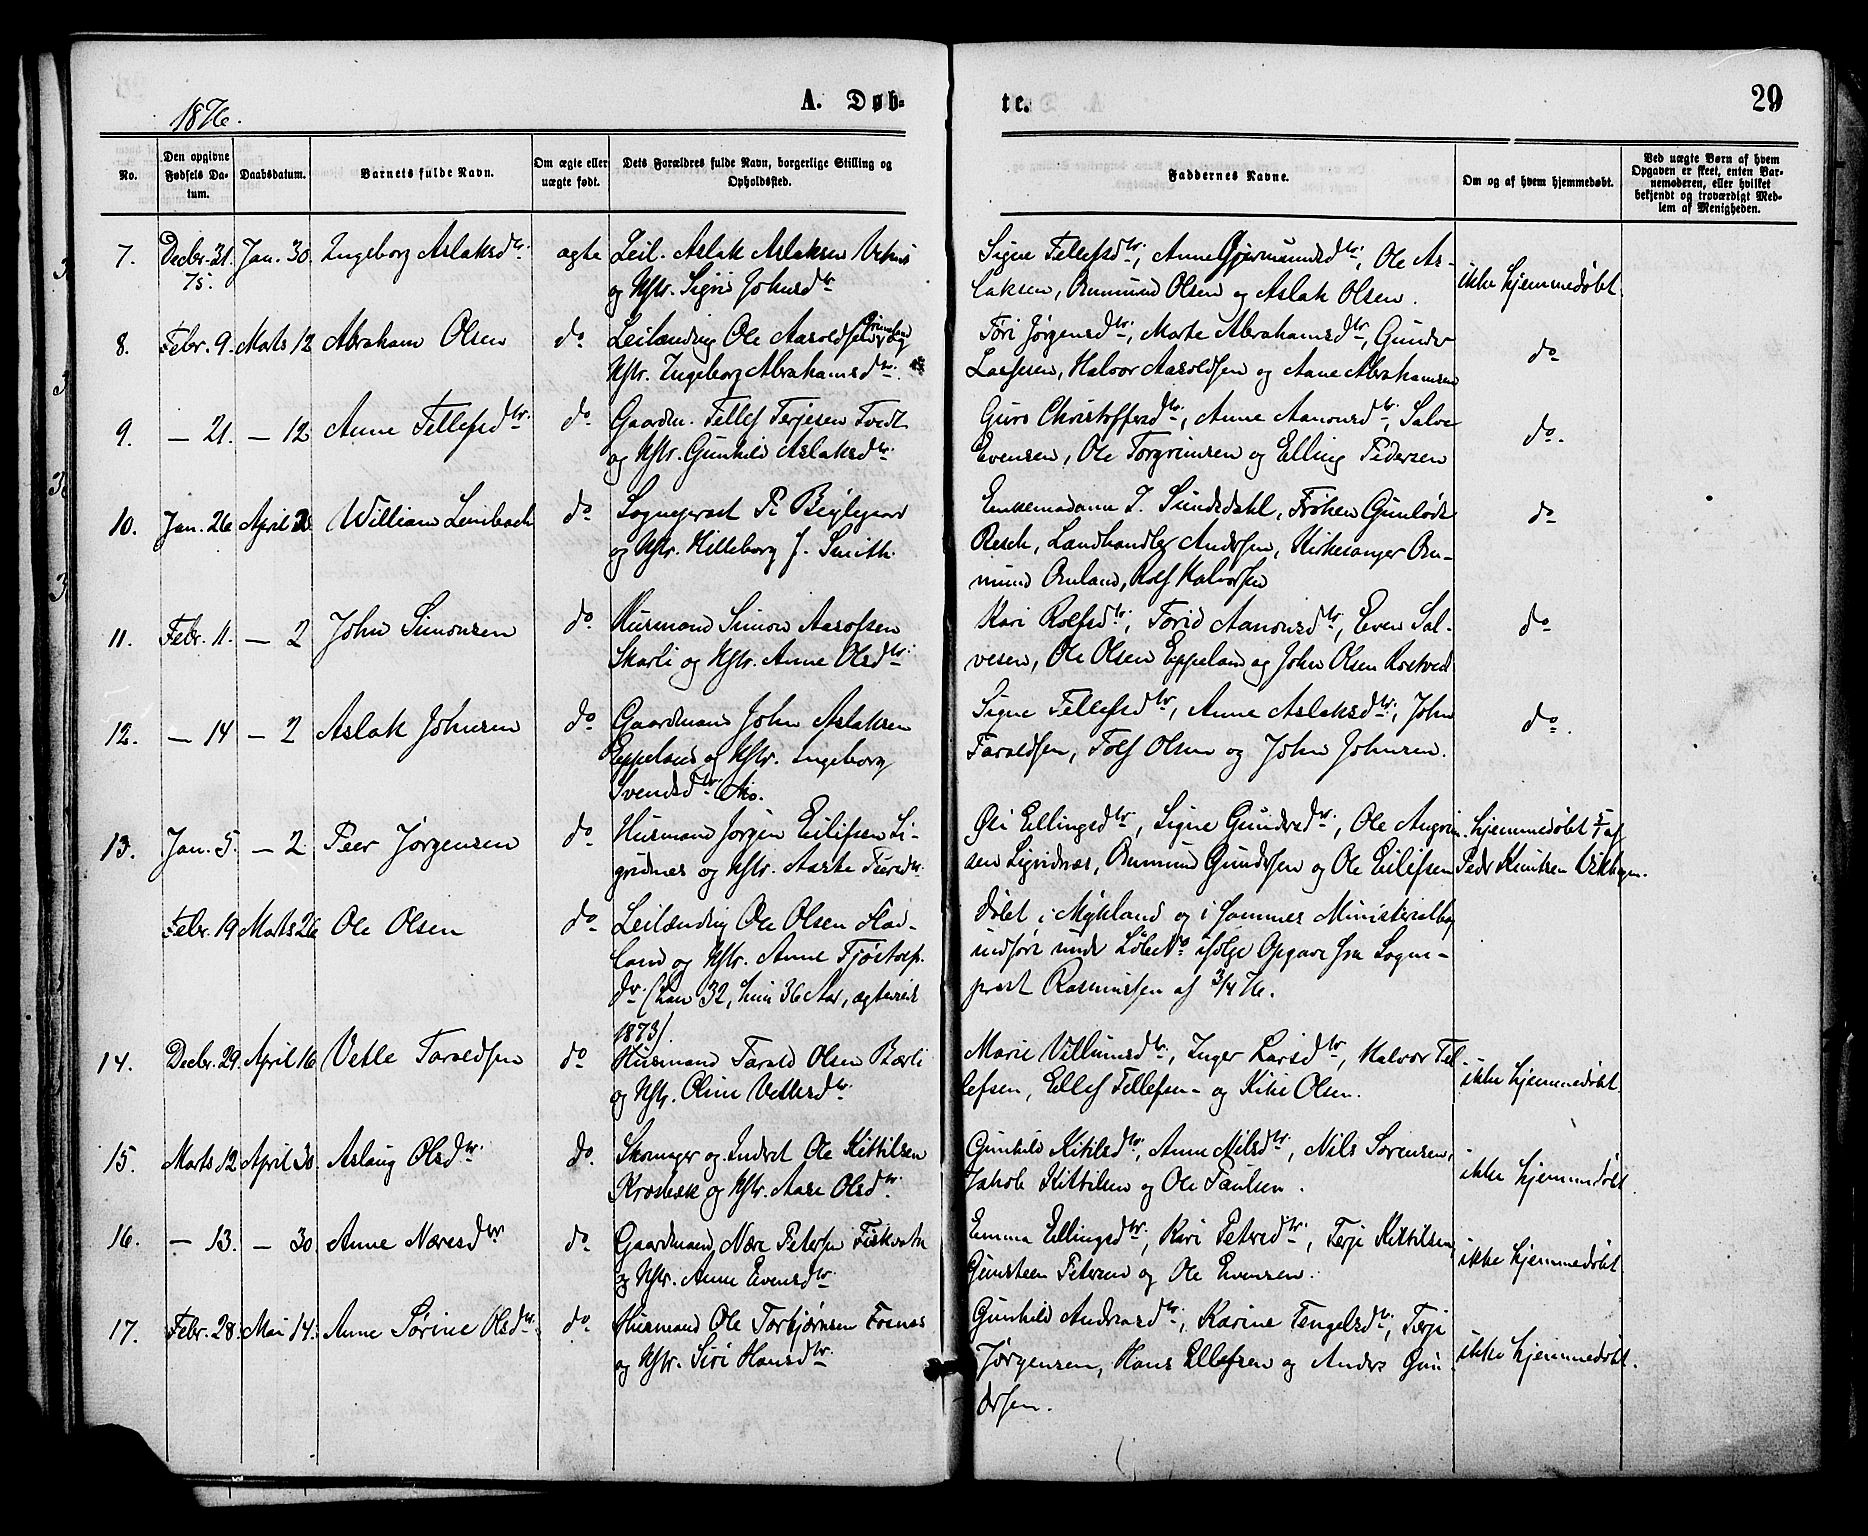 1876.
A. Døb-
te.
29
No.
Den opgivne Fødsels Da-tum.
Daabsdatum.
Barnets fulde Navn.
Om ægte eller uægte født.
Dets Forældres fulde Navn, borgerlige Stilling og Opholdssted.
Faddernes Navne.
Om og af hvem hjemmedøbt.
Ved uægte Børn af hvem Opgaven er skeet, enten Bar-nemoderen, eller hvilket bekjendt og troværdigt Med-lem af Menigheden.
7. Decbr. 31. Jan. 30. Ingeborg Aslaksdtr. ægte Leil. Aslak Aslaksen
75.
og Hstr. Sigri Johnsdtr
Signe Tellefsdtr., Anne Gjermundsdtr., Ole As-
laksen, Omund Olsen og Aslak Olsen.
ikke hjemmedøbt.
8. Febr. 9. Marts 12 Abraham Olsen do Leilænding Ole Aaroldsen Grimsland og
Hstr. Ingeborg Abrahamsdtr.
Tøri Jørgensdtr., Marte Abrahamsdtr, Gunder
Lassesen, Halvor Aaroldsen og Aane Abrahamsen
do
9. — 21. — 12 Anne Tellefsdtr. do. Gaardm. Tellef Terjesen Tvedt
og Hstr. Gunhild Aslaksdtr.
Guro Christoffersdtr., Anne Aanonsdtr., Salve
Evensen, Ole Torgrimsen og Elling Pedersen
do.
10. Jan. 26 April 2 William Leinbach do Sogneprest P. Beiglegaard
og Hstr. Hilleborg J. Smith.
Enkemadame I. Sundsdahl, Frøken Gunløde
Resch, Landhandler Andersen, Kirkesanger Om-
mund Omland, Rolf Halvorsen
do
11. Febr. 11. — 2 John Simonsen do. Husmand Simon Aarofsen
Skarli og Hstr. Anne Olsdtr.
Kari Rolfsdtr., Torid Aanonsdtr., Even Sal-
vesen, Ole Olsen Eppeland og John Olsen Rostved
do
12. — 14 — 2 Aslak Johnsen do Gaardmand John Aslaksen
Eppeland og Hstr. Ingeborg
Svendsdtr. Mo.
Signe Tellefsdtr, Anne Aslaksdtr., John
Taraldsen, Tolf Olsen og John Johnsen.
do.
13. Jan. 5. — 2. Peer Jørgensen do Husmand Jørgen Eilifsen Si-
gridnes og Hstr. Aaste
Øli Ellingsdtr, Signe Gundersdtr., Ole Augrim-
sen Sigridnæs, Omund Gundersen og Ole Eilifsen
hjemmedøbt af
Peder Knutsen
Febr. 19 Marts 26 Ole Olsen do Leilænding Ole Olsen Had-
land og Hstr. Anne Fjøstolfs-
dtr. (han 32, hun 36 Aar, ægteviet
1873)
døbt i Mykland og i sammes Ministerialbog
indført under Løbe No ifølge Opgave fra Sogne-
prest Rasmussen af 3/4 76.
14. Decbr. 29. April 16 Vetle Taraldsen do Husmand Tarald Olsen Bærli
og Hstr. Oline Vetlesdtr.
Marie Villumsdtr, Inger Larsdtr, Halvor Tel-
lefsen, Ellef Tellefsen og Kitil Olsen.
ikke hjemmedøbt.
15. Marts 12 April 30. Aslaug Olsdtr. do. Skomager og Inderst Ole Kittilsen
Krosbæk og Hstr. Aase Olsdtr.
Gunhild Kitilsdtr., Anne Nilsdtr., Nils Sørensen,
Jakob Kittilsen og Ole Paulsen.
ikke hjemmedøbt.
16. — 13. — 30 Anne Næresdtr do. Gaardmand Nære Petersen Fiskvatn
og Hstr. Anne Evensdtr.
Emma Ellingsdtr., Kari Petersdtr., Terje Kittilsen,
Gunsteen Petersen og Ole Evensen.
ikke hjemmedøbt
17. Febr. 28. Mai 14. Anne Sørine Olsdtr. do. Husmand Ole Torbjørnsen Fosnæs
og Hstr. Siri Hansdtr.
Gunhild Andreasdtr., Karine Tengelsdtr., Terje
Jørgensen, Hans Ellefsen og Anders Gun-
dersen.
ikke hjemmedøbt.